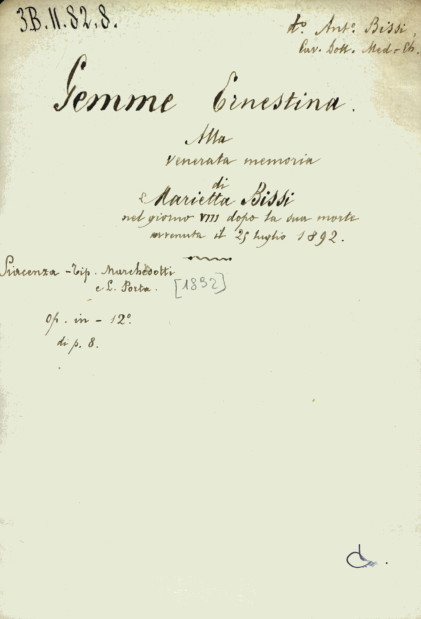 3B.11.82.8.
do. Anto. Bissi,
Cav. Dott. Med - Ch.
Gemme Ernestina.
Alla
venerata memoria
di
Marietta Bissi
nel giorno VIII dopo la sua morte
avvenuta il 25 luglio 1892.
Piacenza - Tip. Marchesotti
e L. Porta. [1892]
Op. in - 12o.
di p. 8.